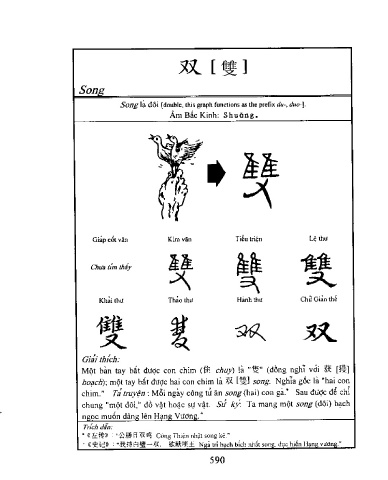 双 [ 雙 ]
Song
Song là đôi [double, this graph functions as the prefix du-, duo-].
Âm Bắc Kinh: Shuāng.
Giáp cốt văn Kim văn Tiểu triện Lệ thư
Chưa tìm thấy
Khải thư Thảo thư Hành thư Chữ Giản thể
雙 双 双
Giải thích:
Một bàn tay bắt được con chim (隹 chuy) là "隻" (đồng nghĩ với 获 [獲]
hoạch); một tay bắt được hai con chim là 双 [雙] song. Nghĩa gốc là "hai con
chim." Tả truyện: Mỗi ngày công tử ăn song (hai) con gà.* Sau được để chỉ
chung "một đôi," đồ vật hoặc sự vật. Sử ký: Ta mang một song (đôi) bạch
ngọc muốn dâng lên Hạng Vương.**
Trích dẫn:
* 《左传》: "公膳日双鸡 Công Thiện nhật song kê."
** 《史记》: "我持白璧一双, 欲献项王 Ngã trì bạch bích nhất song, dục hiến Hạng vương."
590